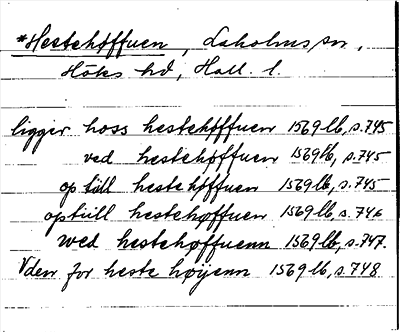 *Hestehøffuen, Laholms sn,
Höks hd, Hall. l.
ligger hoss hestehøffuen 1569 lb, s. 745
ved hestehøffuen 1569 lb, s. 745
op till hestehøffuen 1569 lb, s. 745
optill hestehøffuen 1569 lb, s. 746
wed hestehøffuenn 1569 lb, s. 747.
Vden for heste høyenn 1569 lb, s. 748